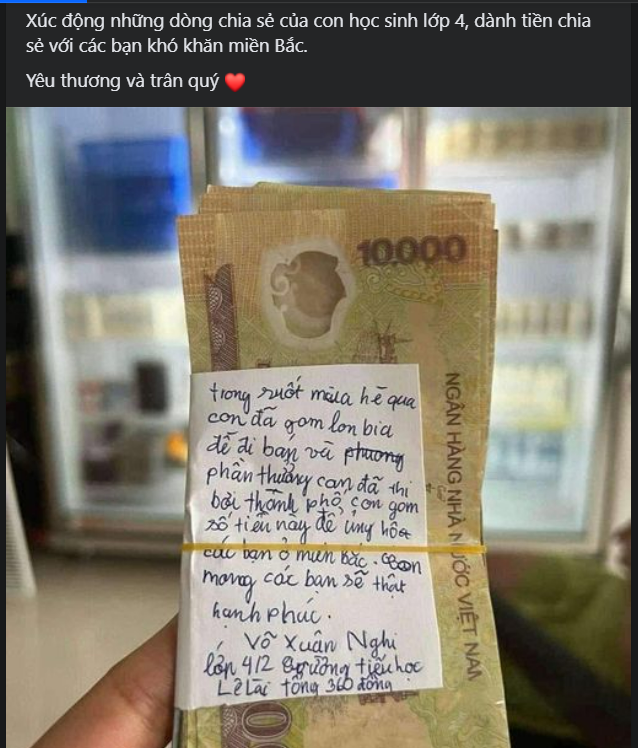 Xúc động những dòng chia sẻ của con học sinh lớp 4, dành tiền chia
sẻ với các bạn khó khăn miền Bắc.
Yêu thương và trân quý ❤️
10.000
NGÂN HÀNG NHÀ NƯỚC VIỆT NAM
trong suốt mùa hè qua
con đã gom lon bia
để đi bán và phương
phần thưởng con đã thi
bơi thành phố, con gom
số tiền này để ủng hộ
các bạn ở miền bắc. Con
mong các bạn sẽ thật
hạnh phúc.
Võ Xuân Nghi
lớp 4/2 trường tiểu học
Lê Lai tổng 360 đồng